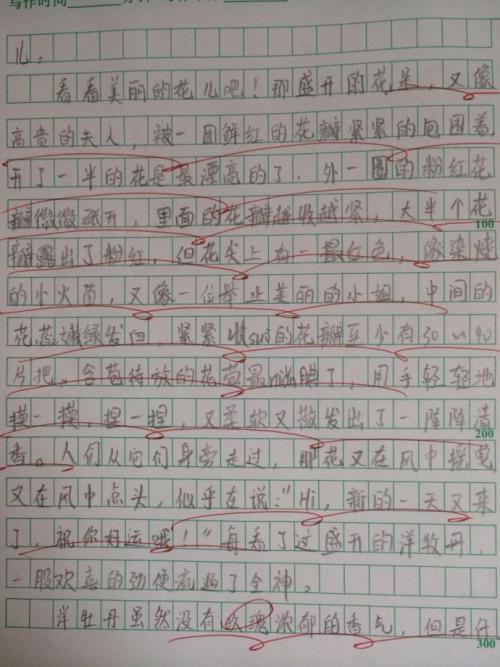 写作时间
儿。
看看美丽的花儿吧!那盛开的花朵,又像
高贵的夫人,被一团鲜红的花瓣紧紧的包围着
开了一半的花是最漂亮的了.外一圈的粉红花
瓣微微张开,里面的花瓣越收越紧,大半个花
100
瓣露出了粉红,但花尖上有一最红色,像染烧
的小火苗,又像一位举止美丽的小姐,中间的
花蕊嫩绿发白,紧紧收suō的花瓣至少有30~40
片把。含苞待放的花苞最 了,用手轻轻地
摸一摸,捏一捏,又柔软又散发出了一阵阵清
200
香。人们从它们身旁走过,那花又在风中摇曳
又在风中点头,似乎在说:"Hi,新的一天又来
了,祝你好运哦!"每看了过盛开的洋牧丹,
一股欢喜的劲便流遍了全神。
洋牡丹虽然没有玫瑰浓郁的香气,但是仔
300